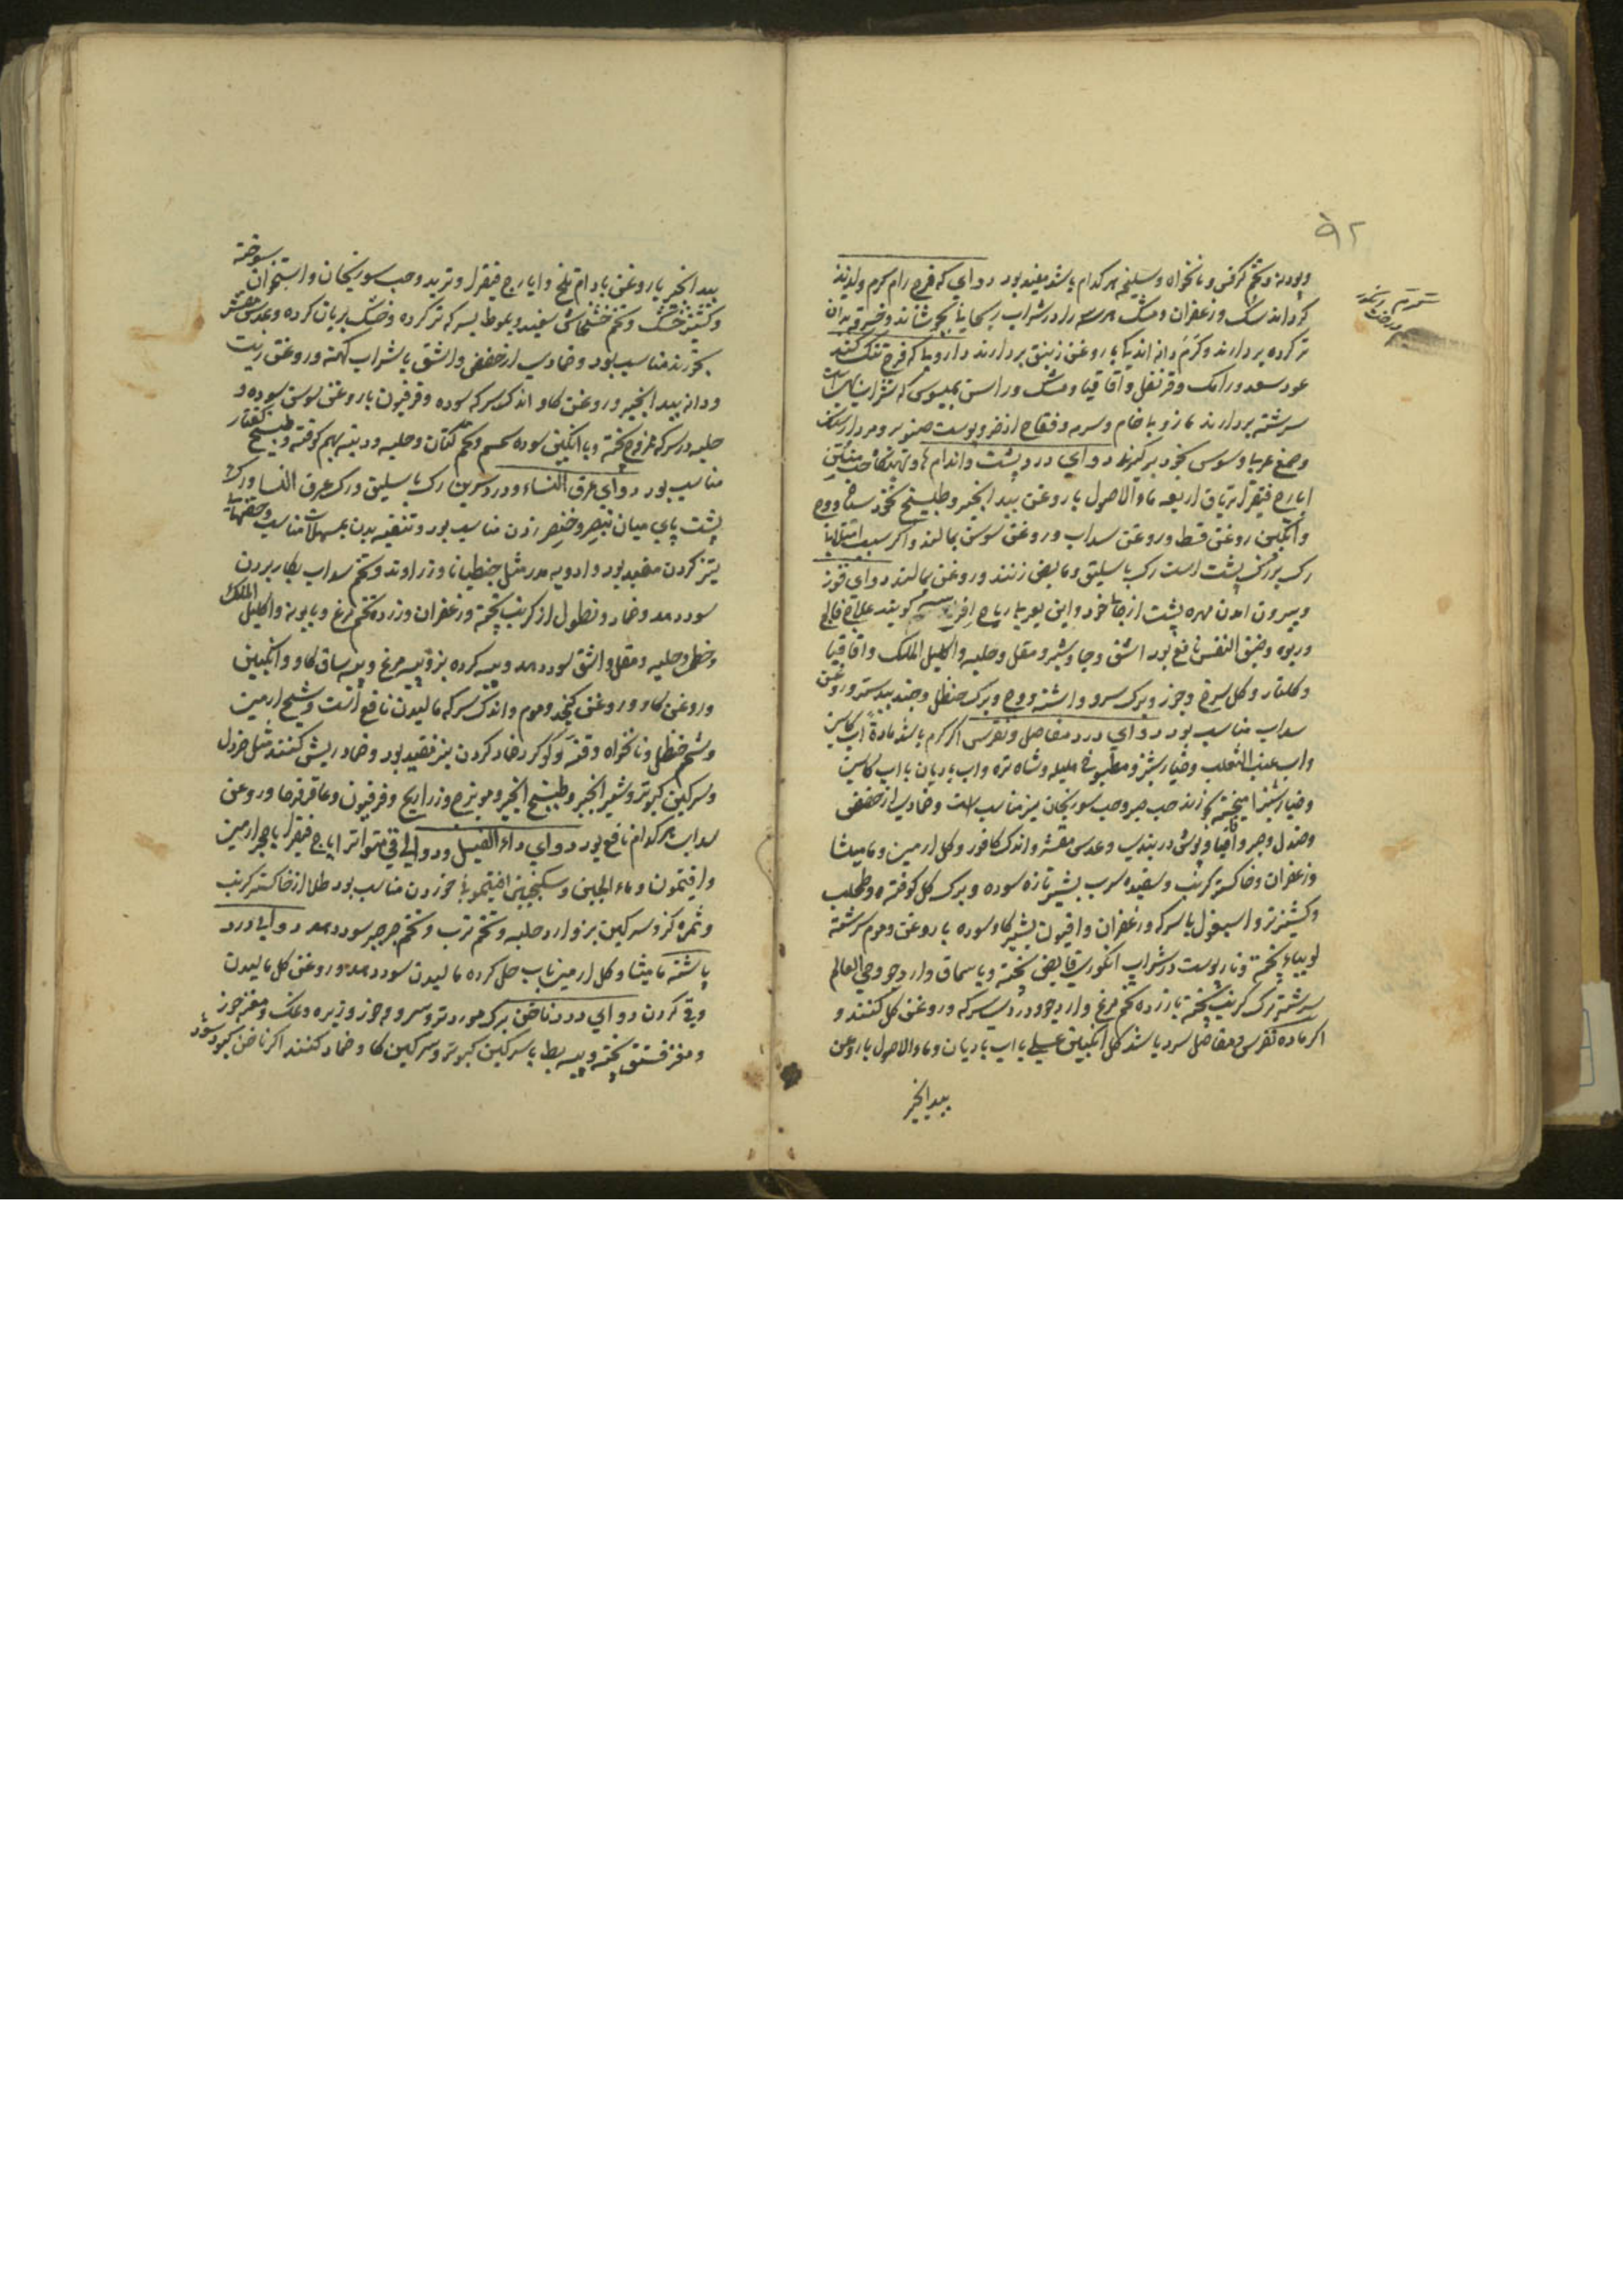 ۹۲
وپودنه وتخم کرفس ونانخواه وسلیخه هر کدام باشد مفید بود دوای که فرج را کرم ولذیذ
کرداند سک وزعفران ومشک هر سه را در شراب ریحانی بجوشانند وخرقه بدان
تر کرده بردارند وکرم دانه اندکی با روغن زنبق بردارند داروی که فرج تنک کند
عود سعد ورامک وقرنفل واقاقیا ومشک وراسن بمیسوس که شراب
سرشته بردارند مازو با خام وسرمه وفقاح اذخر وپوست صنوبر ومردارسنک
وصمغ عربی وسوس بخود برکیرند دوای درد پشت واندام ها وتهیکاه حب منتن
ایارج فیقرا تریاق اربعه ماء الاصول با روغن بید انجیر وطبیخ نخود سیاه ووج
وانکبین روغن قسط وروغن سداب وروغن سوسن بمالند واکر سبب امتلای
رک بزرک پشت است رک باسلیق ومابض زنند وروغن بمالند دوای قوز
وبیرون امدن مهره پشت از جای خود واین بعربی ریاح افرسه کویند علاج فالج
وربوه وضیق النفس نافع بود اشق وجاوشیر ومقل وحلبه واکلیل الملک واقاقیا
وکلنار وکل سرخ وجوز وبرک سرو واشنه ووج وبرک حنظل وجند بیدستر وروغن
سداب مناسب بود دوای درد مفاصل ونقرس اکر کرم باشد ماده اب کاسنی
واب عنب الثعلب وخیارشنبر ومطبوخ هلیله وشاه تره واب بادیان با اب کاسنی
وخیارشنبر امیخته بخورند حب صبر وحب سورنجان نیز مناسب است وضمادی از حضض
وصندل وحجر واقاقیا وبوش دربندی وعدس مقشر واندک کافور وکل ارمنی ومامیثا
وزعفران وخاکستر کرنب وسفیده سرب بشیر تازه سوده وبرک کل کوفته وطحلب
وکشنیز تر واسبغول با سرکه وزعفران وافیون بشیر کاو سوده با روغن وموم سرشته
لوبیاء پخته ونار پوست در شراب انکوری قابض پخته وبا سماق وارد جو وحی العالم
سرشته برک کرنب پخته با زرده تخم مرغ وارد جو ودردی سرکه وروغن کل کنند و
اکر ماده نقرس ومفاصل سرد باشد کل انکبین عسلی با اب بادیان وماء الاصول با روغن
بید انجیر
بید انجیر یا روغن بادام تلخ وایارج فیقرا وتربد وحب سورنجان واستخوان سوخته
وکشنیز خشک وتخم خشخاش سفید وبلوط بسرکه تر کرده وخشک بریان کرده وعدس مقشر
بخورند مناسب بود وضمادی از حضض واشق با شراب کهنه وروغن زیت
ودانه بید انجیر وروغن کاو اندک سرکه سوده وفرفیون با روغن سوسن سوده و
حلبه در سرکه ممزوج پخته وبا انکبین سوده سمسم وتخم کتان وحلبه ودنبه بهم کوفته وطبیخ کفتار
مناسب بود دوای عرق النساء ودرد سرین رک باسلیق ورک عرق النسا ورک
پشت پای میان بنصر وخنصر زدن مناسب بود وتنقیه بدن بمسهلات مناسب وحقنهای
تیز کردن مفید بود وادویه مدر مثل جنطیانا وزراوند وتخم سداب بکار بردن
سود دهد وضماد ونطول از کرنب پخته وزعفران وزرده تخم مرغ وبابونه واکلیل الملک
وخطمی وحلبه ومقل واشق سود دهد وپیه کرده بز وپیه مرغ وپیه ساق کاو وانکبین
وروغن کاو وروغن کنجد وموم واندک سرکه مالیدن نافع است وشیح ارمنی
وشحم حنظل ونانخواه وقنه وکوکرد ضماد کردن نیز مفید بود وضماد ریش کننده مثل خردل
وسرکین کبوتر وشیر انجیر وطبیخ انجیر ومویزج وذراریح وفرفیون وعاقرقرحا وروغن
سداب هر کدام نافع بود دوای داء الفیل ودوالی قی متواتر ایارج فیقرا با حجر ارمنی
وافتیمون وماء الجبن وسکنجبین افتیمونی خوردن مناسب بود طلا از خاکستر کرنب
وثمره کز وسرکین بز وارد حلبه وتخم ترب وتخم جرجیر سود دهد دوای درد
پاشنه مامیثا وکل ارمنی باب حل کرده مالیدن سود دهد وروغن کل مالیدن
وقی کردن دوای درد ناخن برک مورد تر وسرو وجوز وزیره ونمک ومغز جوز
ومغز فستق پخته وپیه بط با سرکین کبوتر وسرکین کاو ضماد کنند اکر ناخن کبود شود